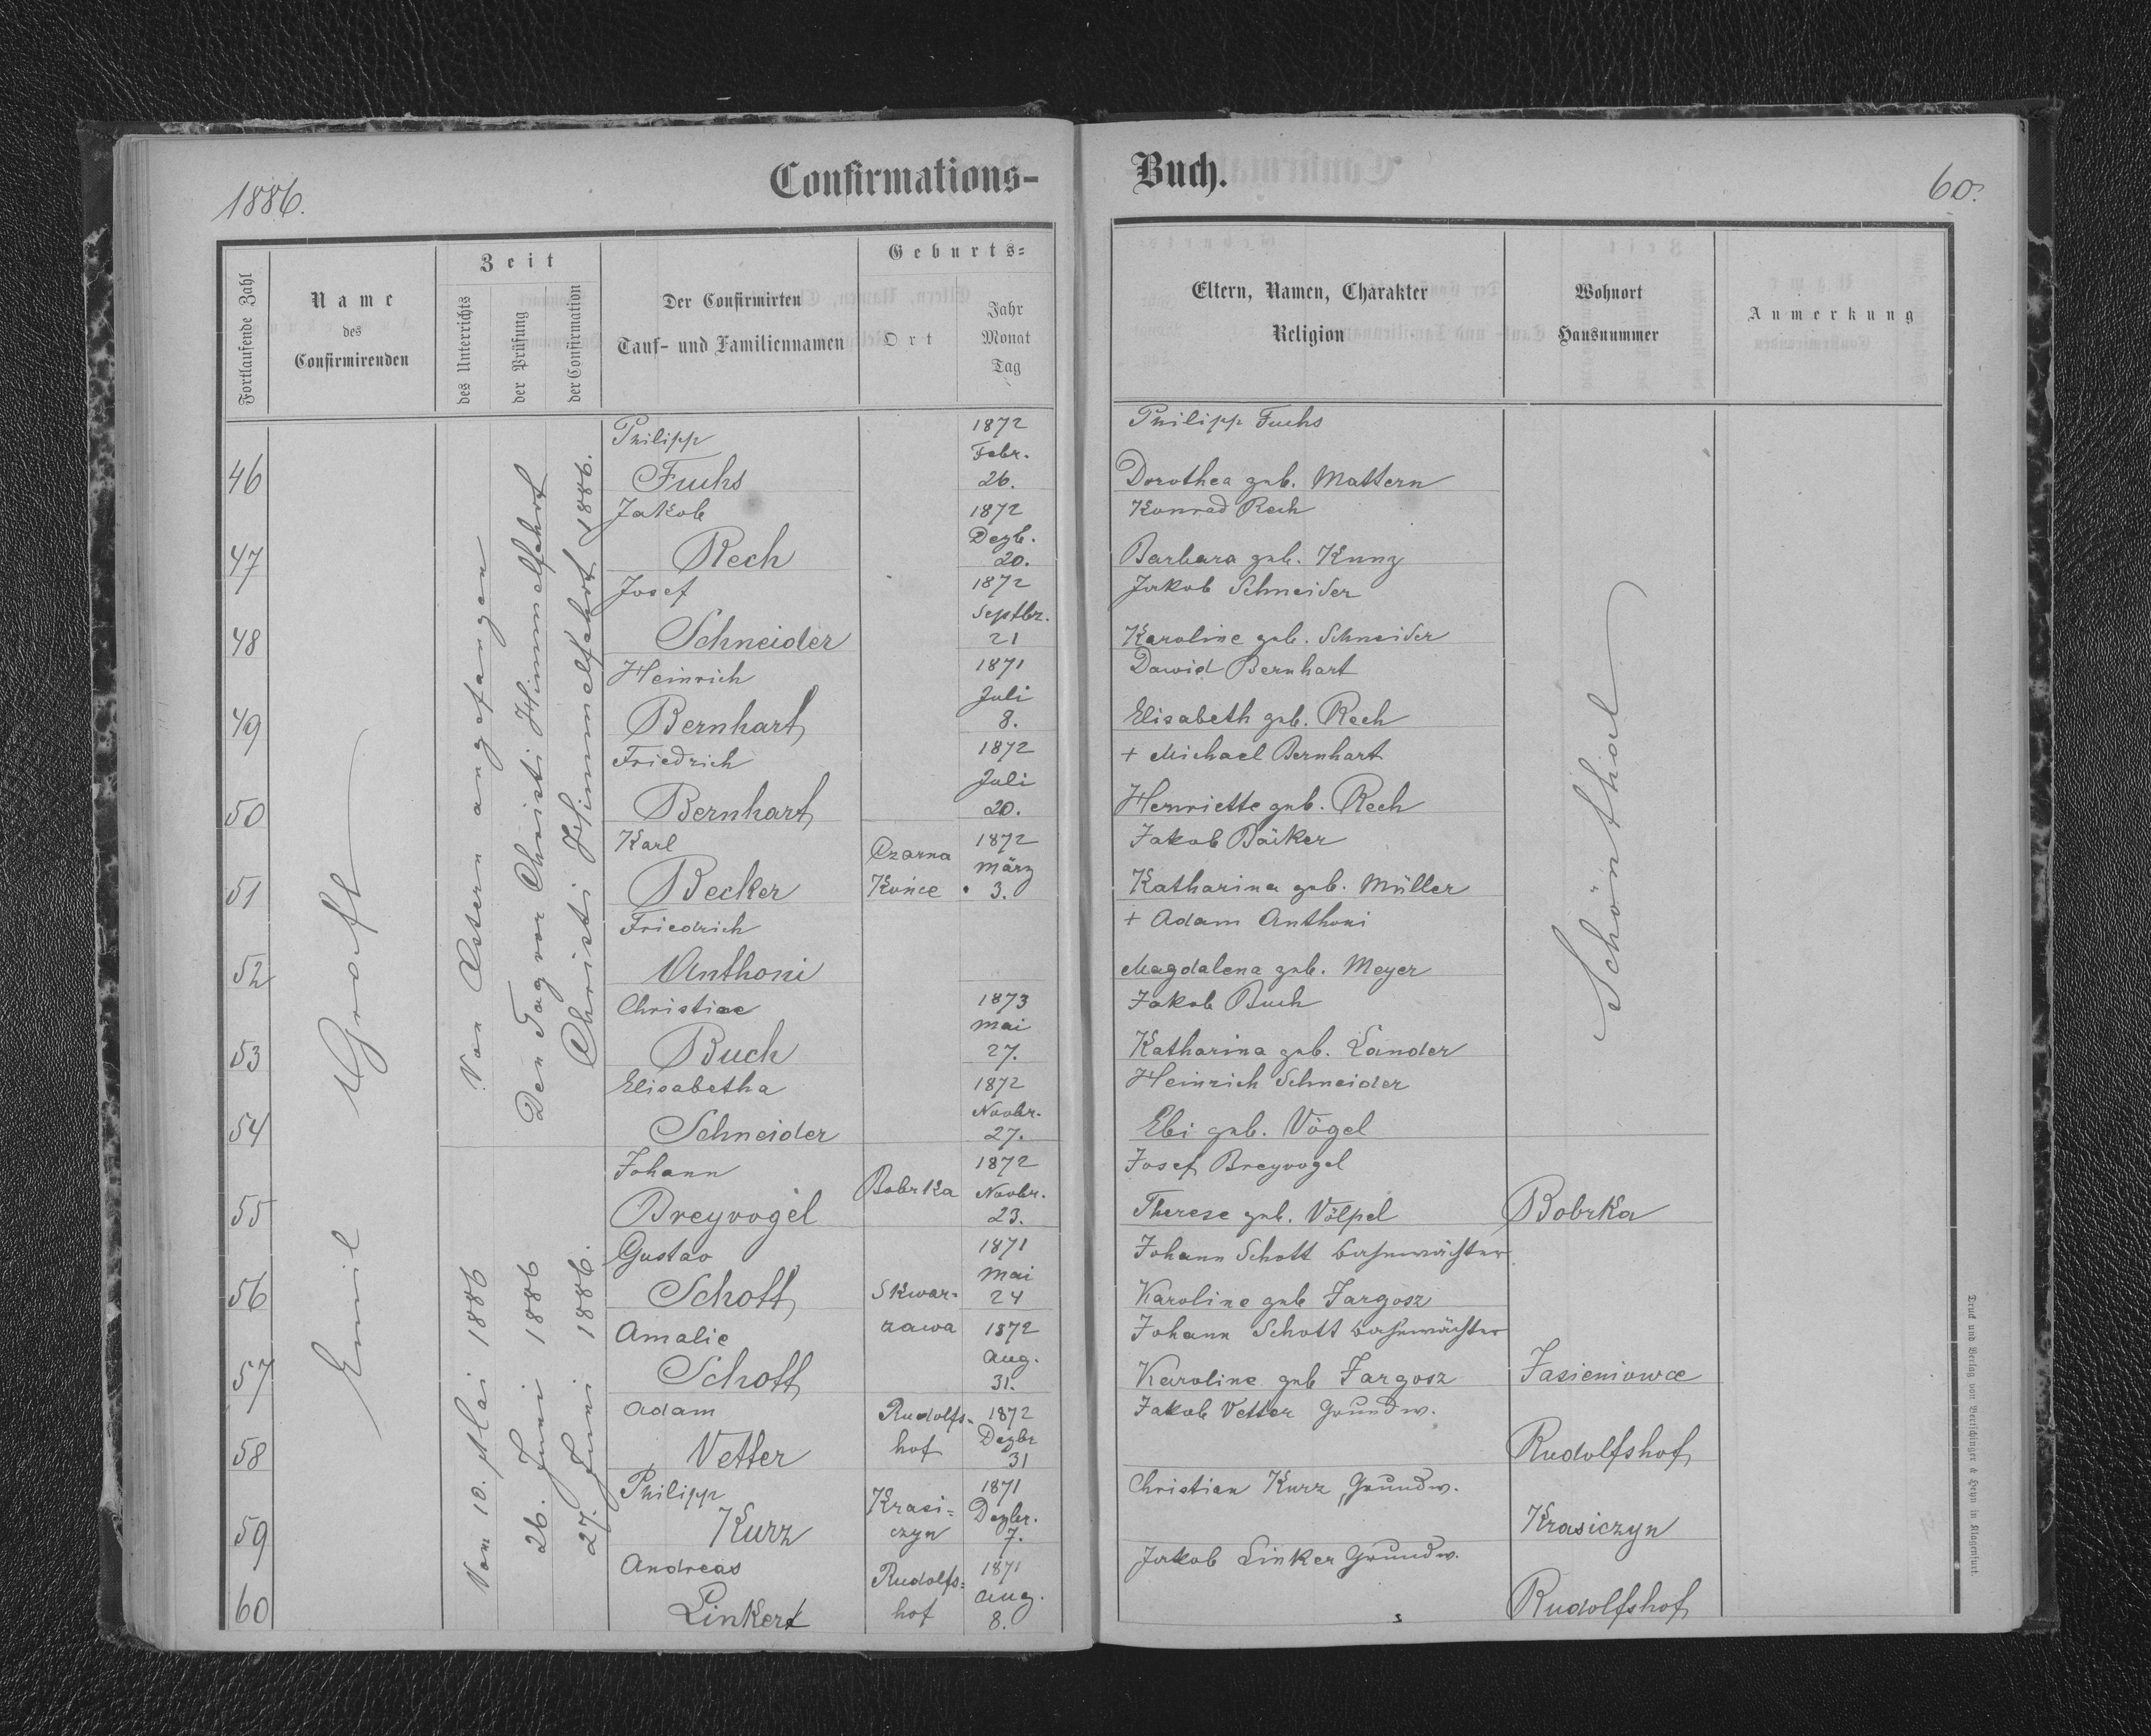 1886.
Confirmations-
Buch.
60.
Fortlaufende Zahl
Name
des
Confirmirenden
Zeit
des Unterrichts
der Prüfung
der Confirmation
Der Confirmirten
Tauf- und Familiennamen
Geburts-
Ort
Jahr
Monat
Tag
Eltern, Namen, Charakter
Religion
Wohnort
Hausnummer
Anmerkung
Emil Graft
Von Ostern angefangen
Den Tag vor Christi Himmelfahrt
Christi Himmelfahrt 1886.
Schönthal
Philipp 1872 Philipp Fuchs
Febr.
46 Fuchs 26. Dorothea geb. Mattern
Jakob 1872 Konrad Rech
Dezb.
47 Rech 20. Barbara geb. Kunz
Josef 1872 Jakob Schneider
Septbr.
48 Schneider 21 Karoline geb. Schneider
Heinrich 1871 Dawid Bernhart
Juli
49 Bernhart 8. Elisabeth geb. Rech
Friedrich 1872 + Michael Bernhart
Juli
50 Bernhart 20. Henriette geb. Rech
Karl Czarna 1872 Jakob Bäcker
März
51 Becker Końce 3. Katharina geb. Müller
Friedrich + Adam Anthoni
52 Anthoni Magdalena geb. Meyer
Christine 1873 Jakob Buch
Mai
53 Buch 27. Katharina geb. Lander
Elisabetha 1872 Heinrich Schneider
Novbr.
54 Schneider 27. Ebi geb. Vögel
Von 10. Mai 1886
26. Juni 1886
27. Juni 1886.
Johann 1872 Josef Breyvogel
Bobrka Novbr.
55 Breyvogel 23. Therese geb. Völpel Bobrka
Gustav 1871 Johann Schott Bahnwächter
Mai
56 Schott Skwar- 24 Karoline geb Jargosz
Amalie zawa 1872 Johann Schott Bahnwächter
Aug.
57 Schott 31. Karoline geb Jargosz Jasieniowce
Adam Rudolfs- 1872 Jakob Vetter Grundw.
Dezbr
58 Vetter hof 31 Rudolfshof
Philipp Krasi- 1871 Christian Kurz, Grundw.
Dezbr.
59 Kurz czyn 7. Krasiczyn
Andreas Rudolfs- 1871 Jakob Linker Grundw.
Aug.
60 Linkert hof 8. Rudolfshof
Druck und Verlag von Bertschinger & Heyn in Klagenfurt.